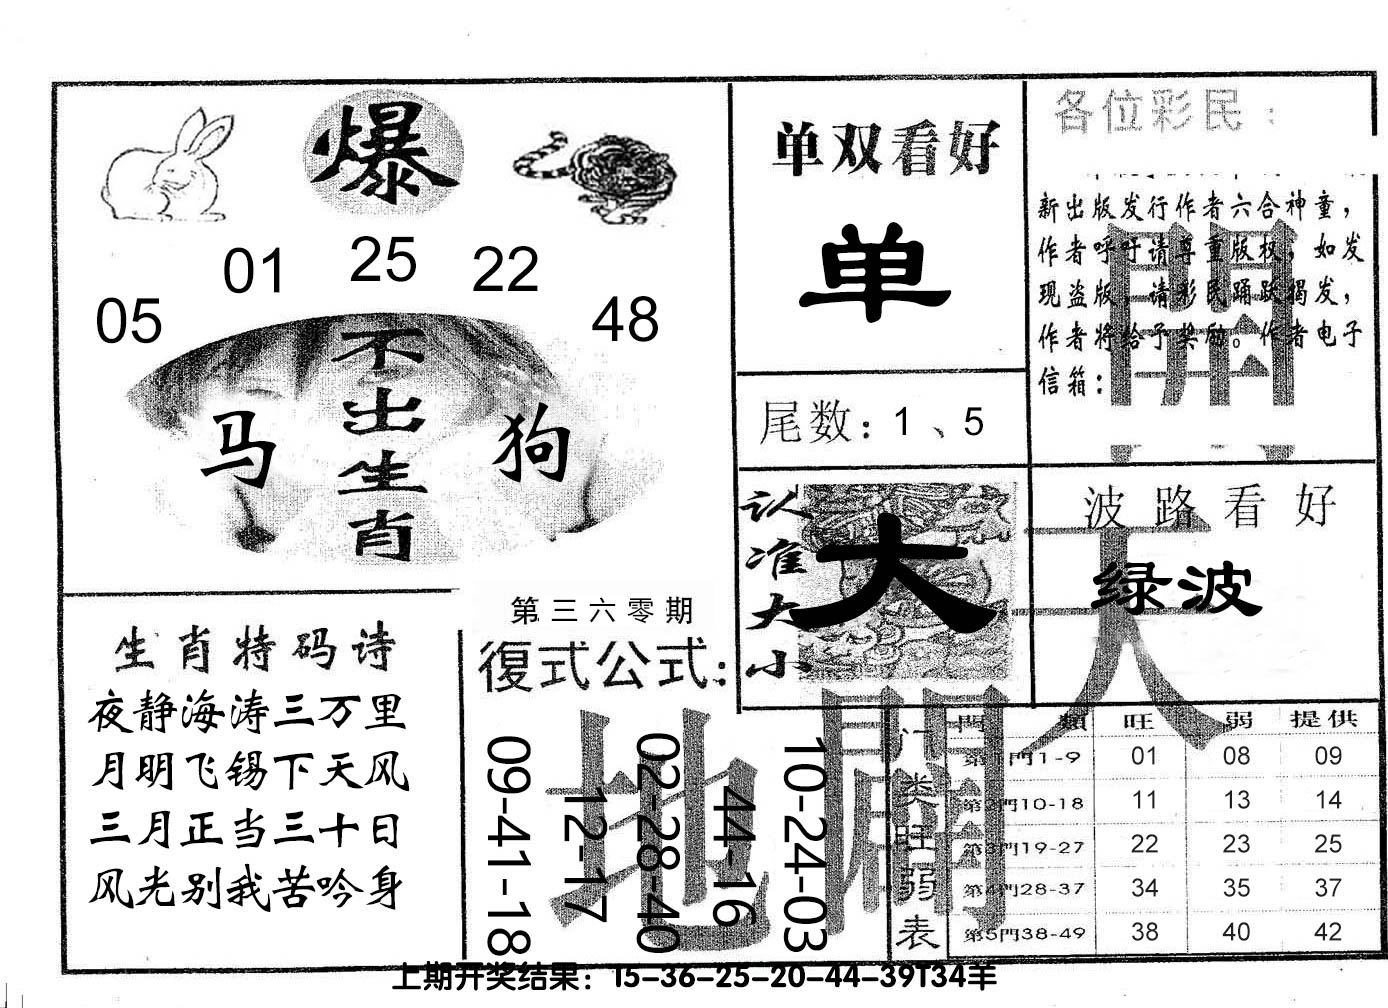 爆
05
01
25
22
48
不出生肖
马
狗
单双看好
单
尾数：1、5
各位彩民：
新出版发行作者六合神童，
作者呼吁请尊重版权，如发
现盗版，请彩民踊跃揭发，
作者将给予奖励。作者电子
信箱：
開
认准大小
大
波路看好
绿波
天
生肖特码诗
夜静海涛三万里
月明飞锡下天风
三月正当三十日
风光别我苦吟身
第三六零期
復式公式：
09-41-18
12-17
02-28-40
44-16
10-24-03
地
門类旺弱表
門 類 旺 弱 提供
第1門1-9 01 08 09
第2門10-18 11 13 14
第3門19-27 22 23 25
第4門28-37 34 35 37
第5門38-49 38 40 42
上期开奖结果：15-36-25-20-44-39T34羊